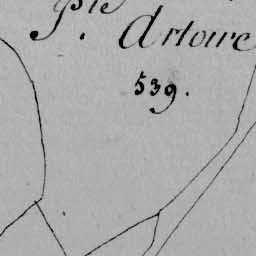 pte
. Artoire
539.